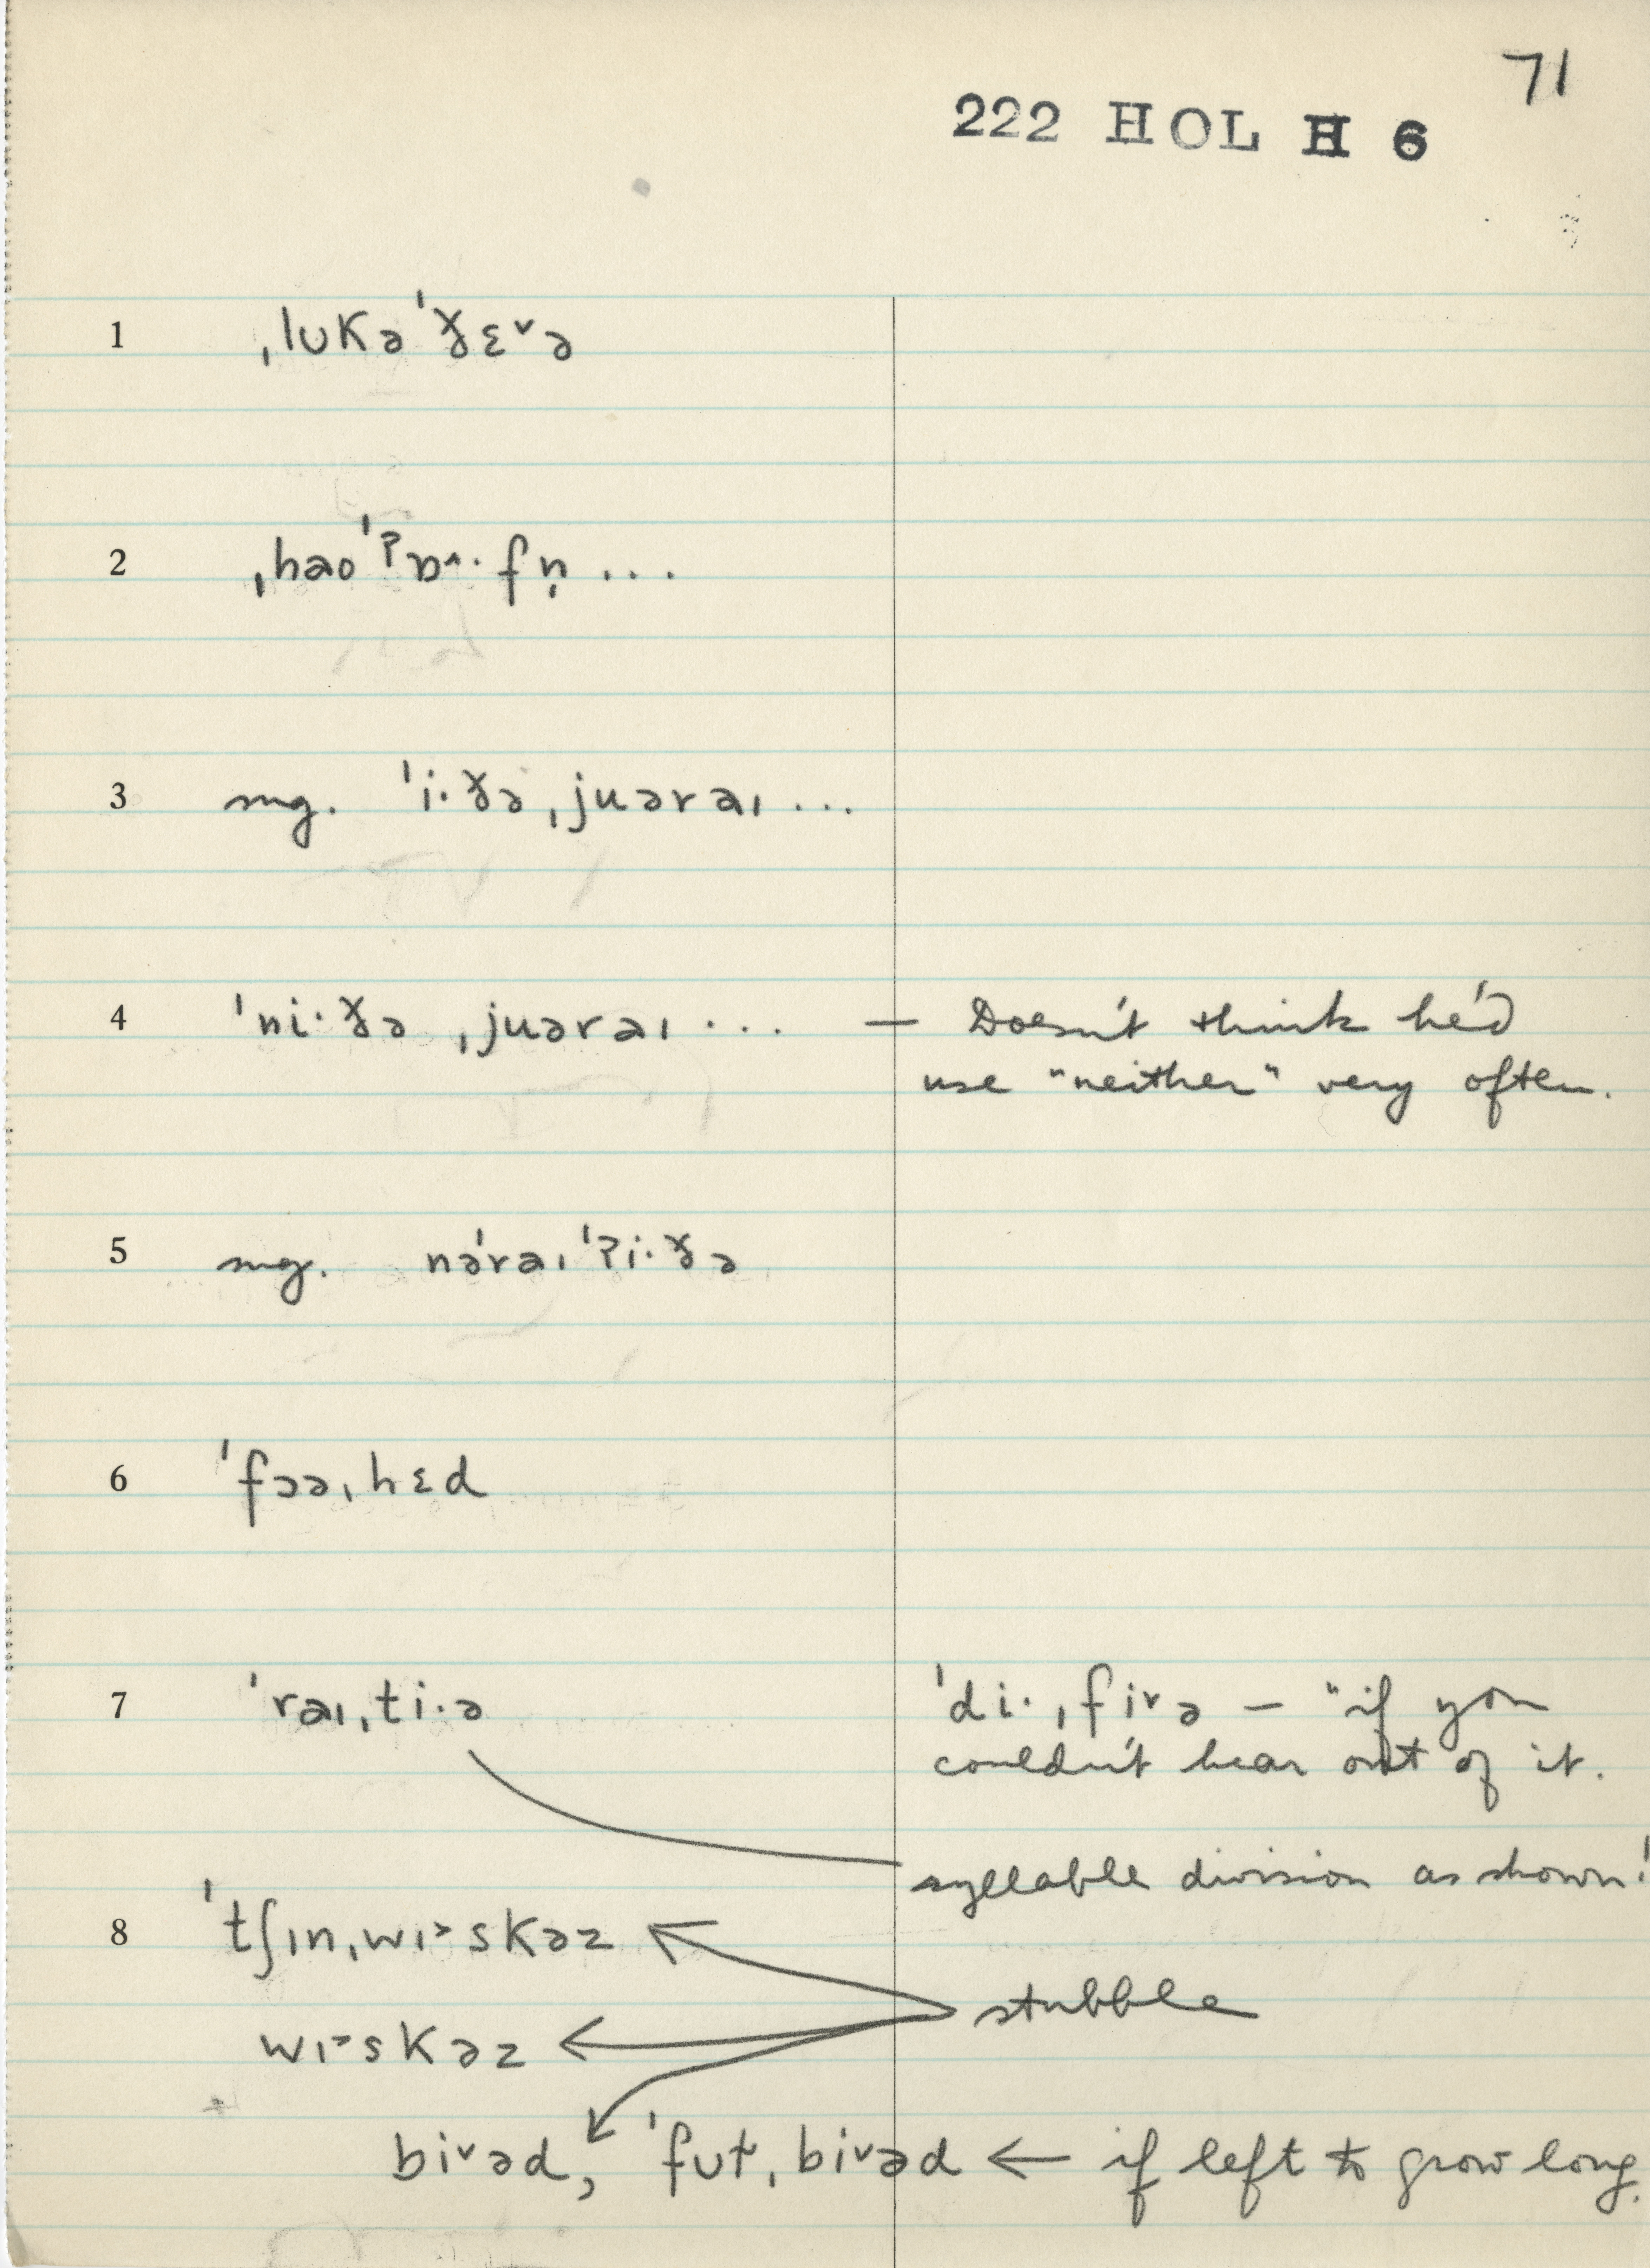 71
222 HOL H 6
1 ˌlʊkəˈɣɛ˅ə
2 ˌhaoˈʔɒ˄·fn̩ ...
3 sug. ˈi·ɣəˌjuəraɪ ...
4 ˈni·ɣə ˌjuəraɪ ... — Doesn't think he'd
use "neither" very often.
5 sug. nəˈraɪˈʔi·ɣə
6 ˈfɔəˌhɛd
7 ˈraɪˌti·ə ˈdi·ˌfi˅ə — "if you
couldn't hear out of it.
syllable division as shown!
8 ˈtʃɪnˌwɪ˃skəz
stubble
wɪ˃skəz
bi˅əd, ˈfʊtˌbi˅əd ← if left to grow long.